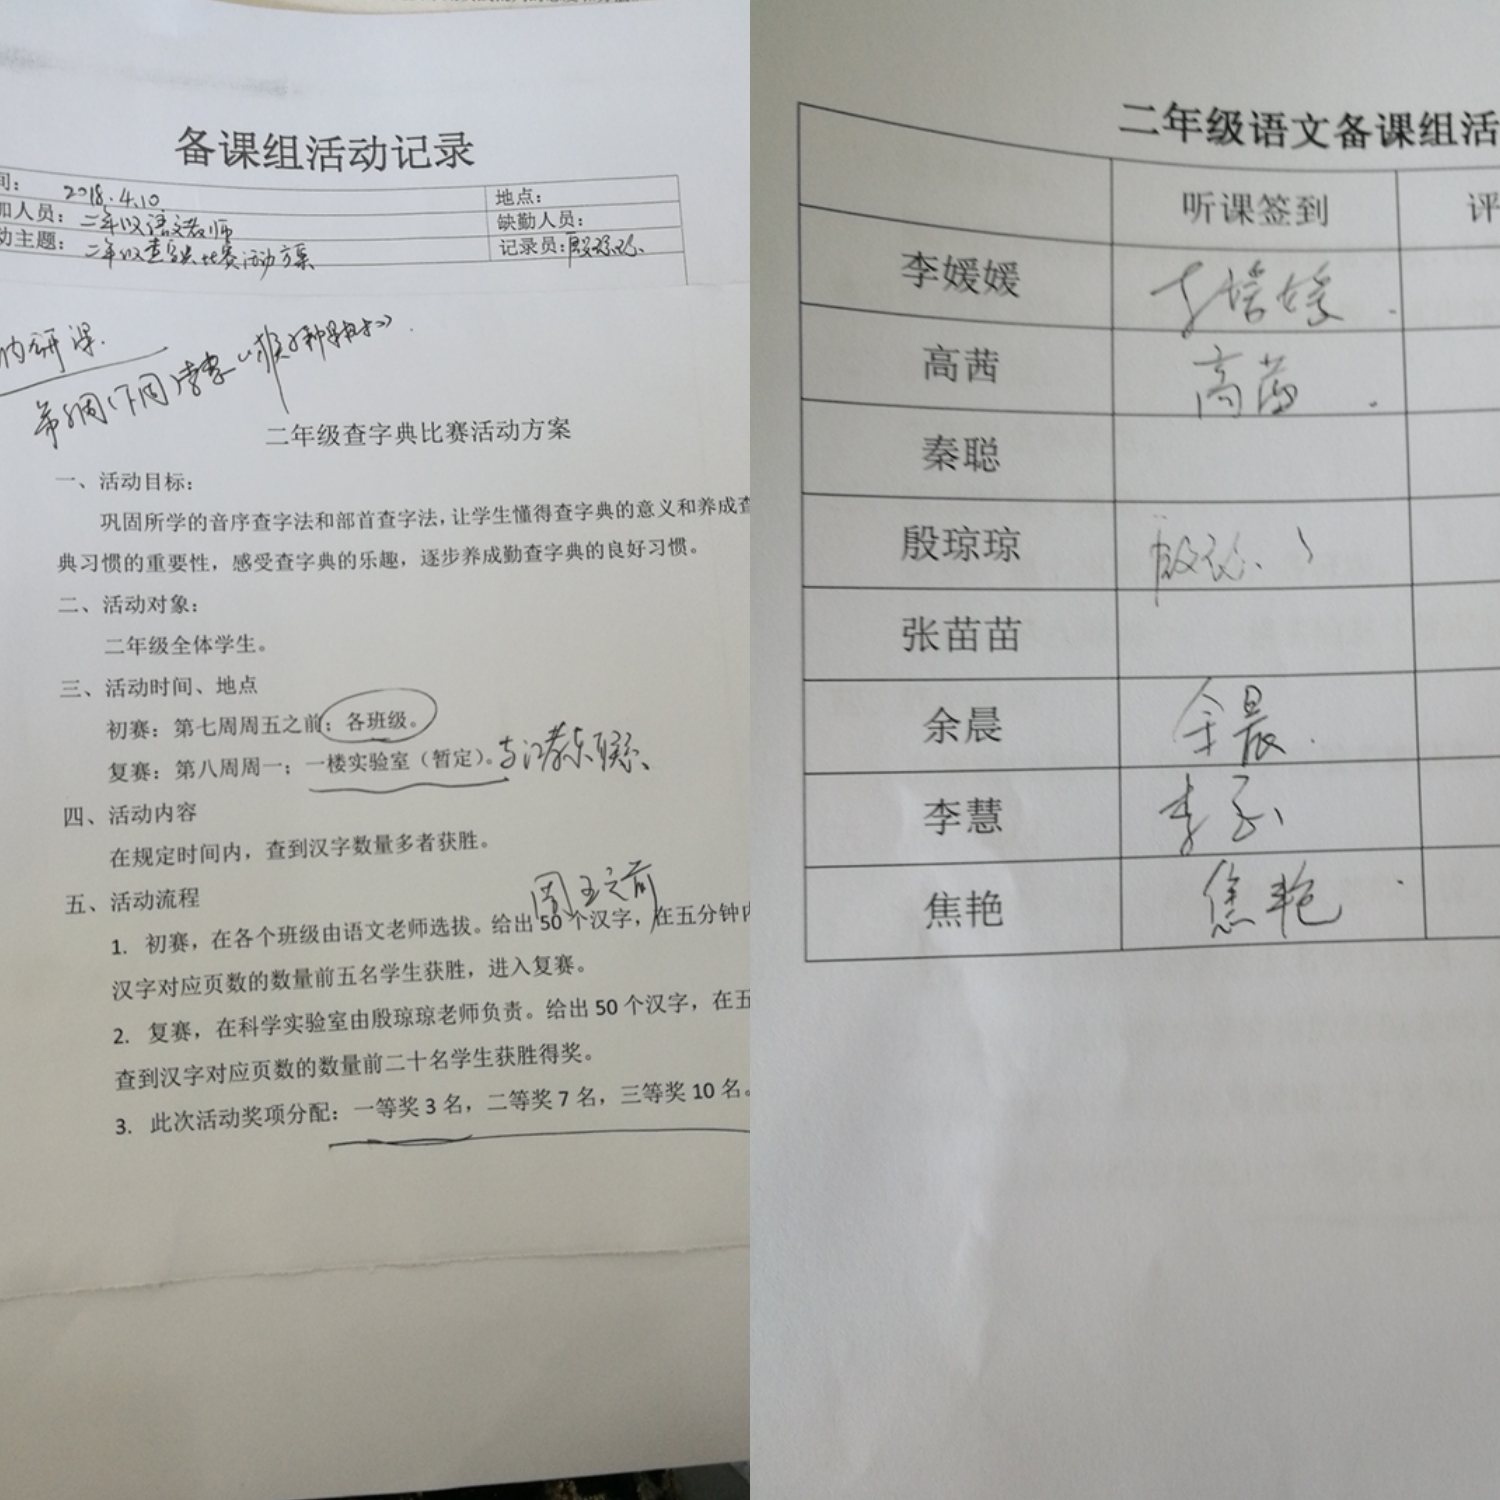 备课组活动记录
间： 2018.4.10 地点：
加人员： 二年级语文教师 缺勤人员：
动主题： 二年级查字典比赛活动方案 记录员：殷琼琼
内研课
二年级查字典比赛活动方案
一、活动目标：
巩固所学的音序查字法和部首查字法，让学生懂得查字典的意义和养成查
典习惯的重要性，感受查字典的乐趣，逐步养成勤查字典的良好习惯。
二、活动对象：
二年级全体学生。
三、活动时间、地点
初赛：第七周周五之前；各班级。
复赛：第八周周一；一楼实验室（暂定）。
四、活动内容
在规定时间内，查到汉字数量多者获胜。
五、活动流程
周五之前
1. 初赛，在各个班级由语文老师选拔。给出 50 个汉字，在五分钟内
汉字对应页数的数量前五名学生获胜，进入复赛。
2. 复赛，在科学实验室由殷琼琼老师负责。给出 50 个汉字，在五
查到汉字对应页数的数量前二十名学生获胜得奖。
3. 此次活动奖项分配：一等奖 3 名，二等奖 7 名，三等奖 10 名。
二年级语文备课组活
听课签到 评
李媛媛 李媛媛
高茜 高茜
秦聪
殷琼琼 殷琼琼
张苗苗
余晨 余晨
李慧 李慧
焦艳 焦艳